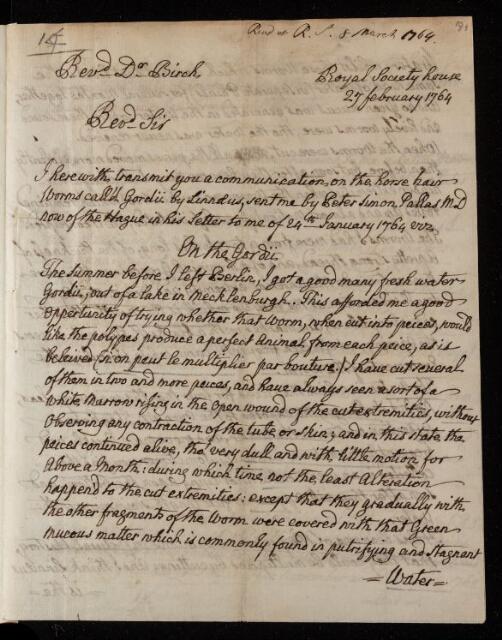 Read at R. S. 8 March 1764.
14
Revd. Dr. Birch
Royal Society house
27 february 1764
Revd. Sir
I herewith transmit you a communication, on the horse hair
Worms call'd Gordii by Linnæus, sent me by Peter Simon Pallas M.D
now of the Hague in his Letter to me of 24th January 1764 viz
On the Gordii
The Summer before I left Berlin, I got a good many fresh water
Gordii, out of a lake in Mecklenburgh. This afforded me a good
oppertunity of trying whether that Worm, when cut into peices, would
like the polypas produce a perfect Animal from each peice, as is
beleived (s'on peut le multiplier par bouture.) I have cut several
of them in two and more peices, and have always seen a sort of a
white Marrow rising in the open wound of the cut extremities, without
Observing any contraction of the tube or Skin; and in this state the
peices continued alive, tho' very dull and with little motion for
above a Month: during which time not the least Alteration
happend to the cut extremities: except that they gradually with
the other fragments of the Worm were covered with that Green
mucous matter which is commonly found in putrifying and Stagnant
=Water=